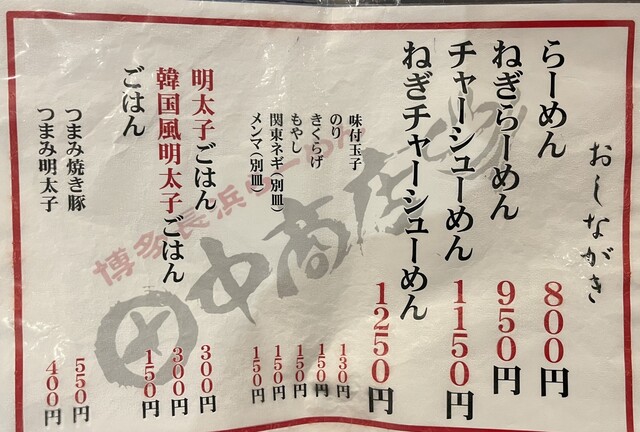 おしながき
らーめん 800円
ねぎらーめん 950円
チャーシューめん 1150円
ねぎチャーシューめん 1250円
味付玉子 130円
のり 150円
きくらげ 150円
もやし 150円
関東ネギ(別皿) 150円
メンマ(別皿) 150円
明太子ごはん 300円
韓国風明太子ごはん 300円
ごはん 150円
つまみ焼き豚 550円
つまみ明太子 400円
博多長浜らーめん
田中商店